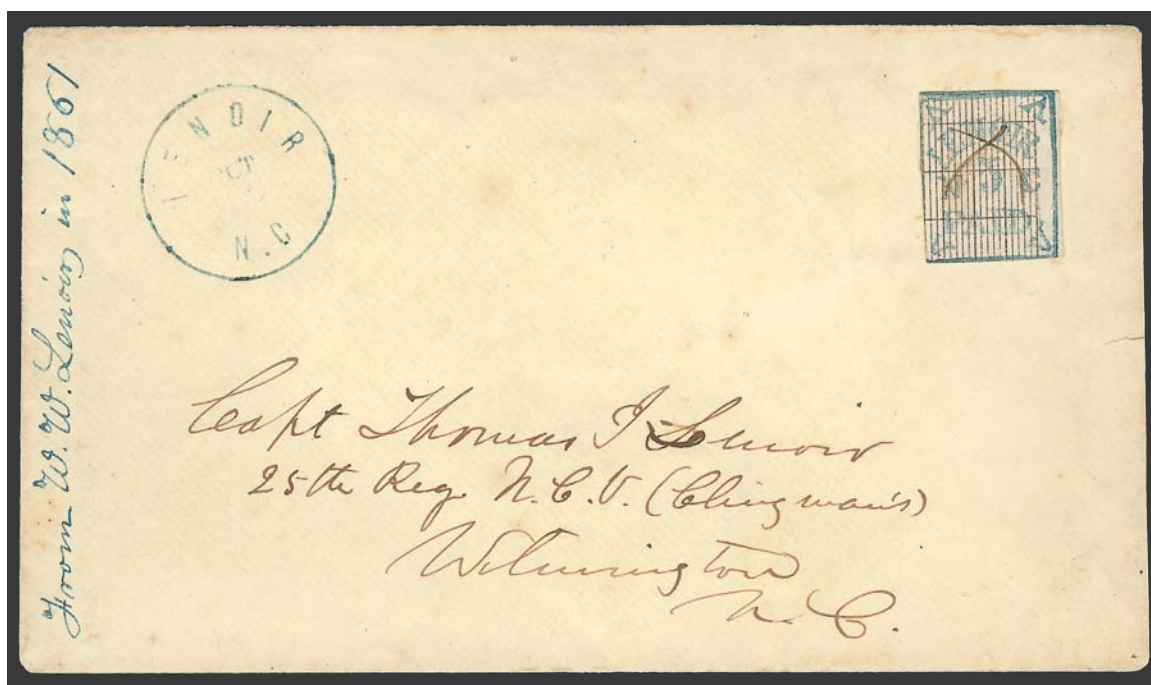 From W. W. Lenoir in 1861
LENOIR
OCT
N.C
LENOIR
5
N C
PAID
Capt Thomas I Lenoir
25th Reg. N. C. V. (Clingman's)
Wilmington
N. C.